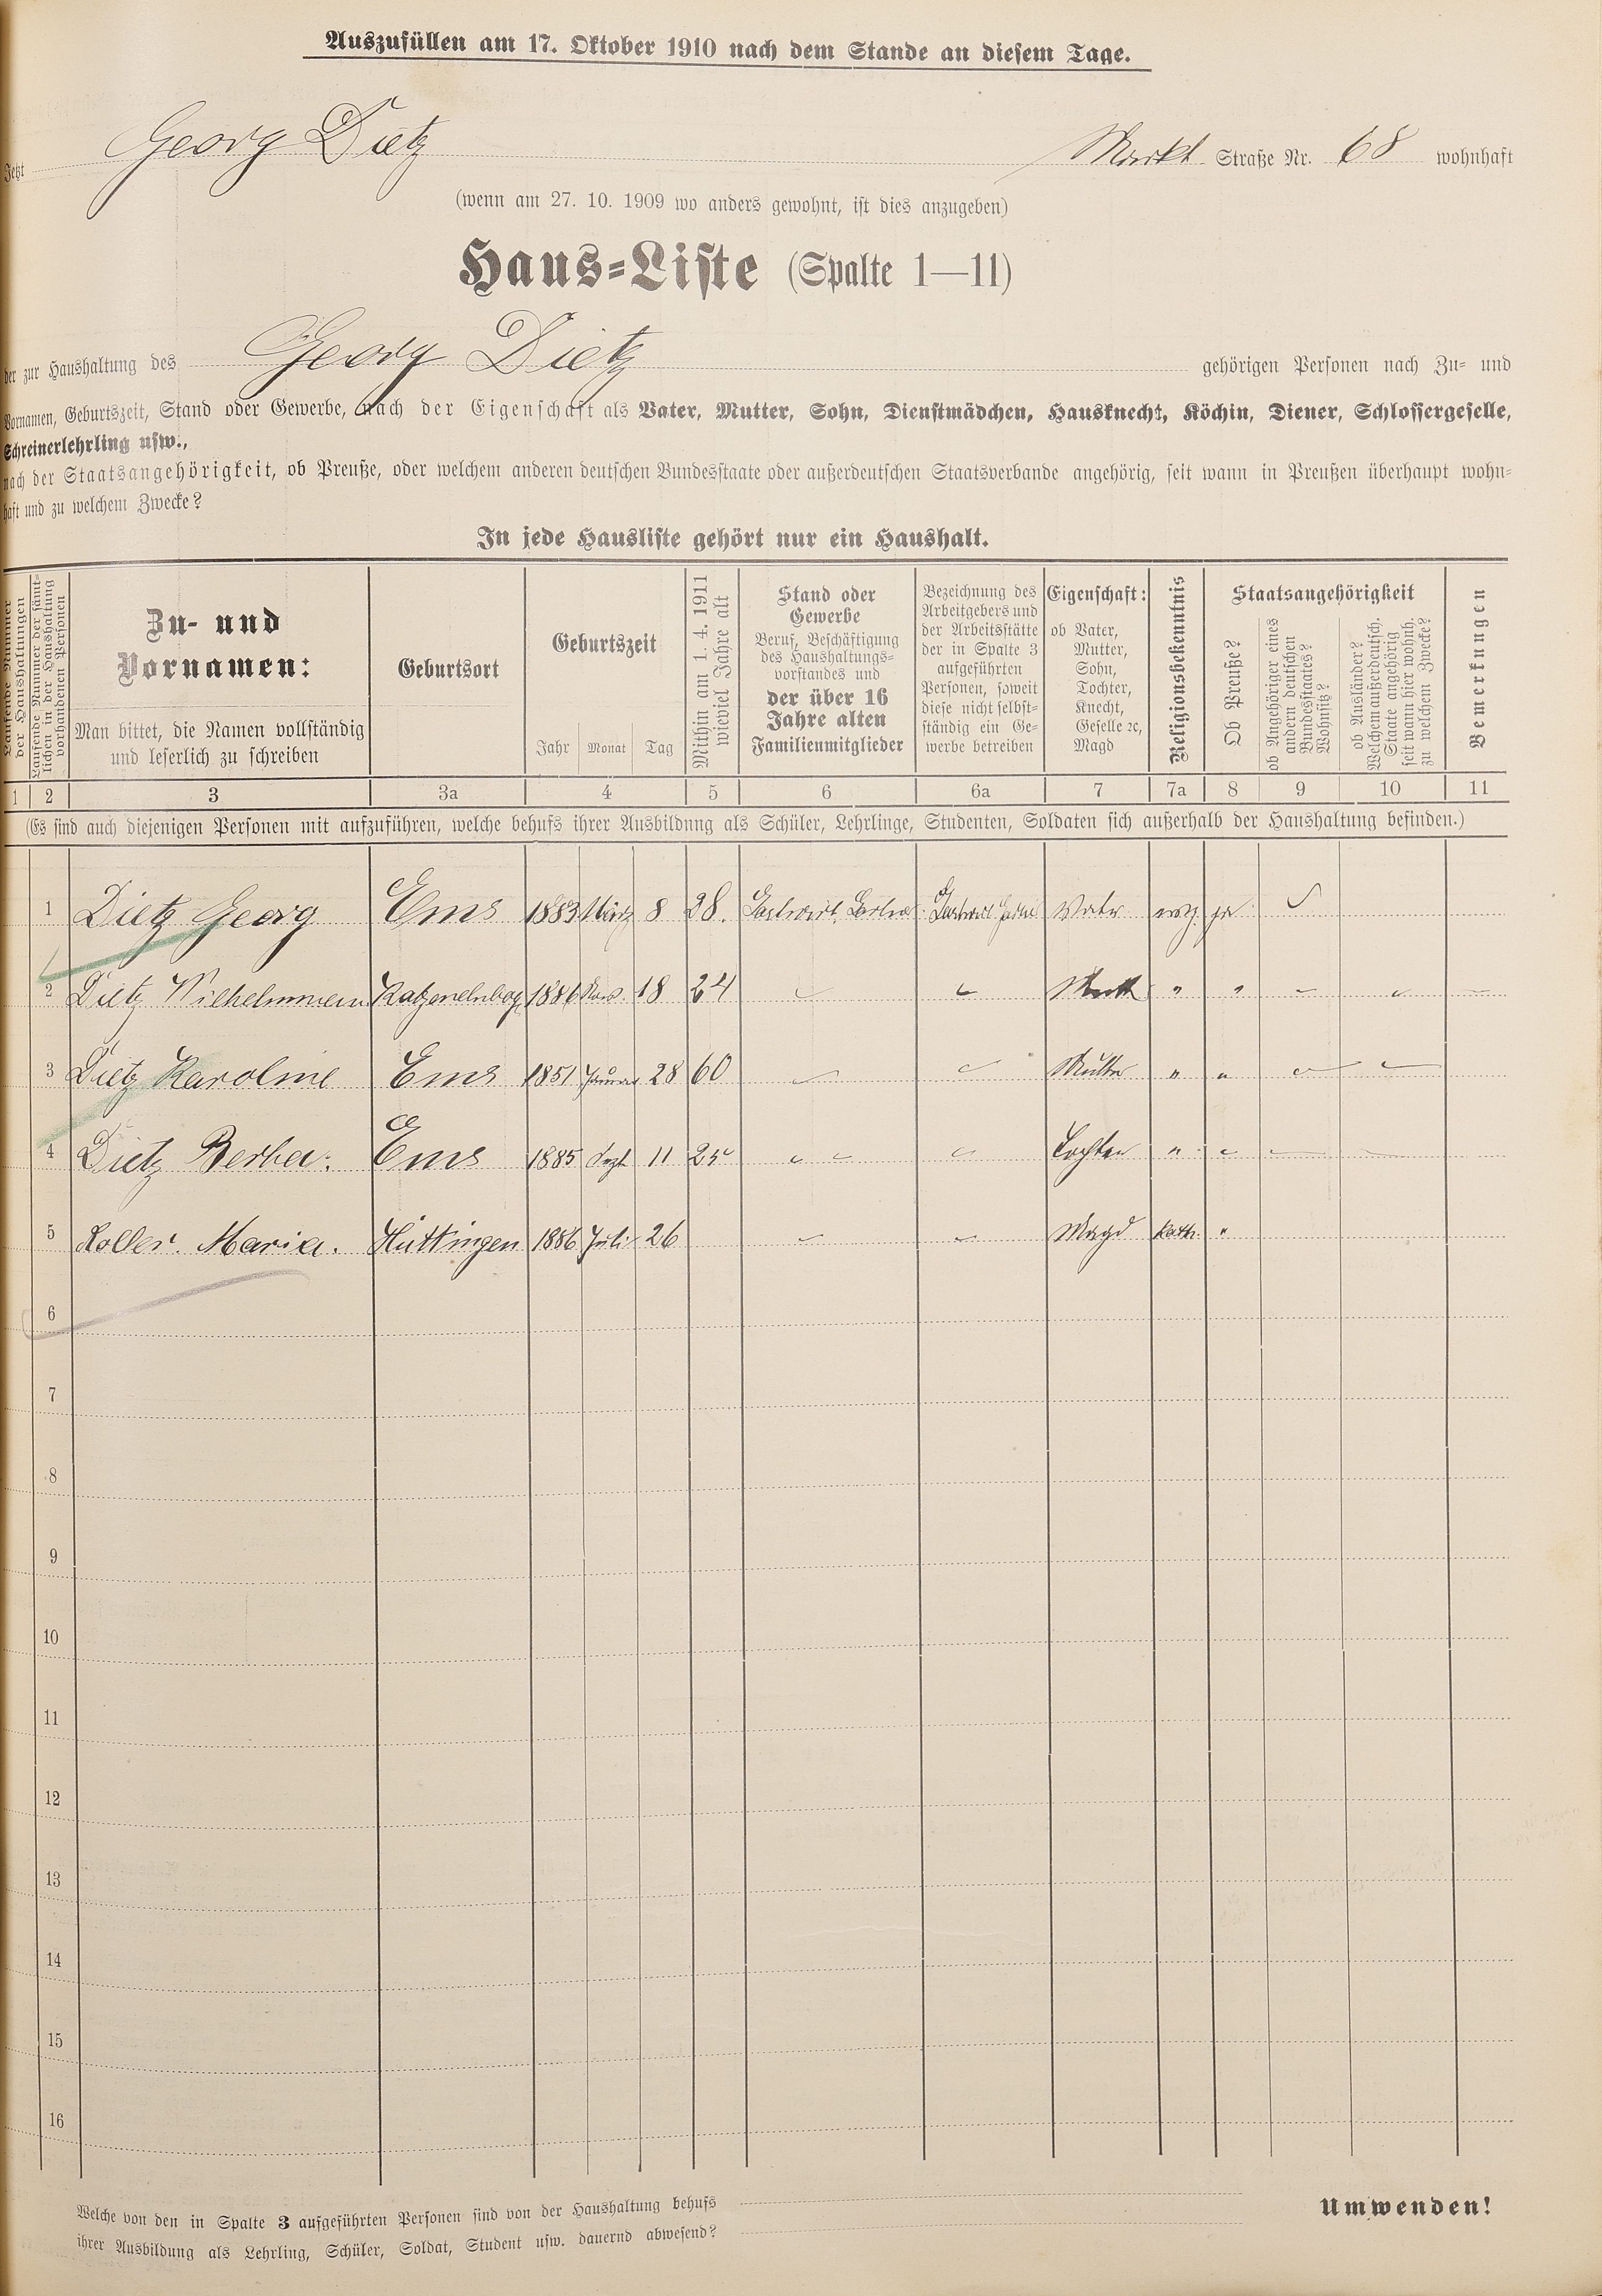 Auszufüllen am 17. Oktober 1910 nach dem Stande an diesem Tage.
Jetzt Georg Dietz Markt Straße Nr. 68 wohnhaft
(wenn am 27. 10. 1909 wo anders gewohnt, ist dies anzugeben)
Haus-Liste (Spalte 1—11)
der zur Haushaltung des Georg Dietz gehörigen Personen nach Zu- und
Vornamen, Geburtszeit, Stand oder Gewerbe, nach der Eigenschaft als Vater, Mutter, Sohn, Dienstmädchen, Hausknecht, Köchin, Diener, Schlossergeselle,
Schreinerlehrling usw.,
nach der Staatsangehörigkeit, ob Preuße, oder welchem anderen deutschen Bundesstaate oder außerdeutschen Staatsverbande angehörig, seit wann in Preußen überhaupt wohn-
haft und zu welchem Zwecke?
In jede Hausliste gehört nur ein Haushalt.
Laufende Nummer
der Haushaltungen
Laufende Nummer der sämt-
lichen in der Haushaltung
vorhandenen Personen
Zu- und
Vornamen:
Man bittet, die Namen vollständig
und leserlich zu schreiben
Geburtsort
Geburtszeit
Jahr Monat Tag
Mithin am 1. 4. 1911
wieviel Jahre alt
Stand oder
Gewerbe
Beruf, Beschäftigung
des Haushaltungs-
vorstandes und
der über 16
Jahre alten
Familienmitglieder
Bezeichnung des
Arbeitgebers und
der Arbeitsstätte
der in Spalte 3
aufgeführten
Personen, soweit
diese nicht selbst-
ständig ein Ge-
werbe betreiben
Eigenschaft:
ob Vater,
Mutter,
Sohn,
Tochter,
Knecht,
Geselle ꝛc,
Magd
Religionsbekenntnis
Staatsangehörigkeit
Ob Preuße?
ob Angehöriger eines
andern deutschen
Bundesstaates?
Wohnsitz?
ob Ausländer?
Welchem außerdeutsch.
Staate angehörig
seit wann hier wohnh.
zu welchem Zwecke?
Bemerkungen
1 2 3 3a 4 5 6 6a 7 7a 8 9 10 11
(Es sind auch diejenigen Personen mit aufzuführen, welche behufs ihrer Ausbildung als Schüler, Lehrlinge, Studenten, Soldaten sich außerhalb der Haushaltung befinden.)
1 Dietz Georg Ems 1883 März 8 28. Vater evg. ja
2 Dietz 1886 18 24 " "
3 Dietz Karoline Ems 1851 Januar 28 60 Mutter " "
4 Dietz Ems 1885 11 25 Tochter "
5 Maria. Hüttingen 1886 Juli 26 Magd kath. "
6
7
8
9
10
11
12
13
14
15
16
Welche von den in Spalte 3 aufgeführten Personen sind von der Haushaltung behufs
ihrer Ausbildung als Lehrling, Schüler, Soldat, Student usw. dauernd abwesend?
Umwenden!